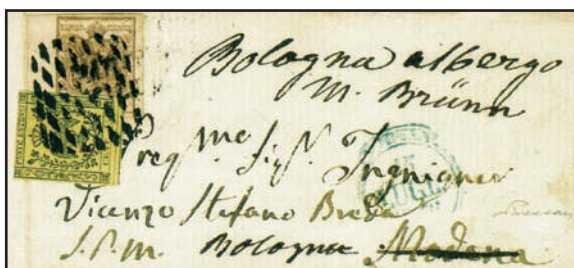 Bologna albergo
M. Brünn
Preg.me Sig.r Ingnianer
Vicenzo Stefano Breda
S.P.M. Bologna Modena
LUGL